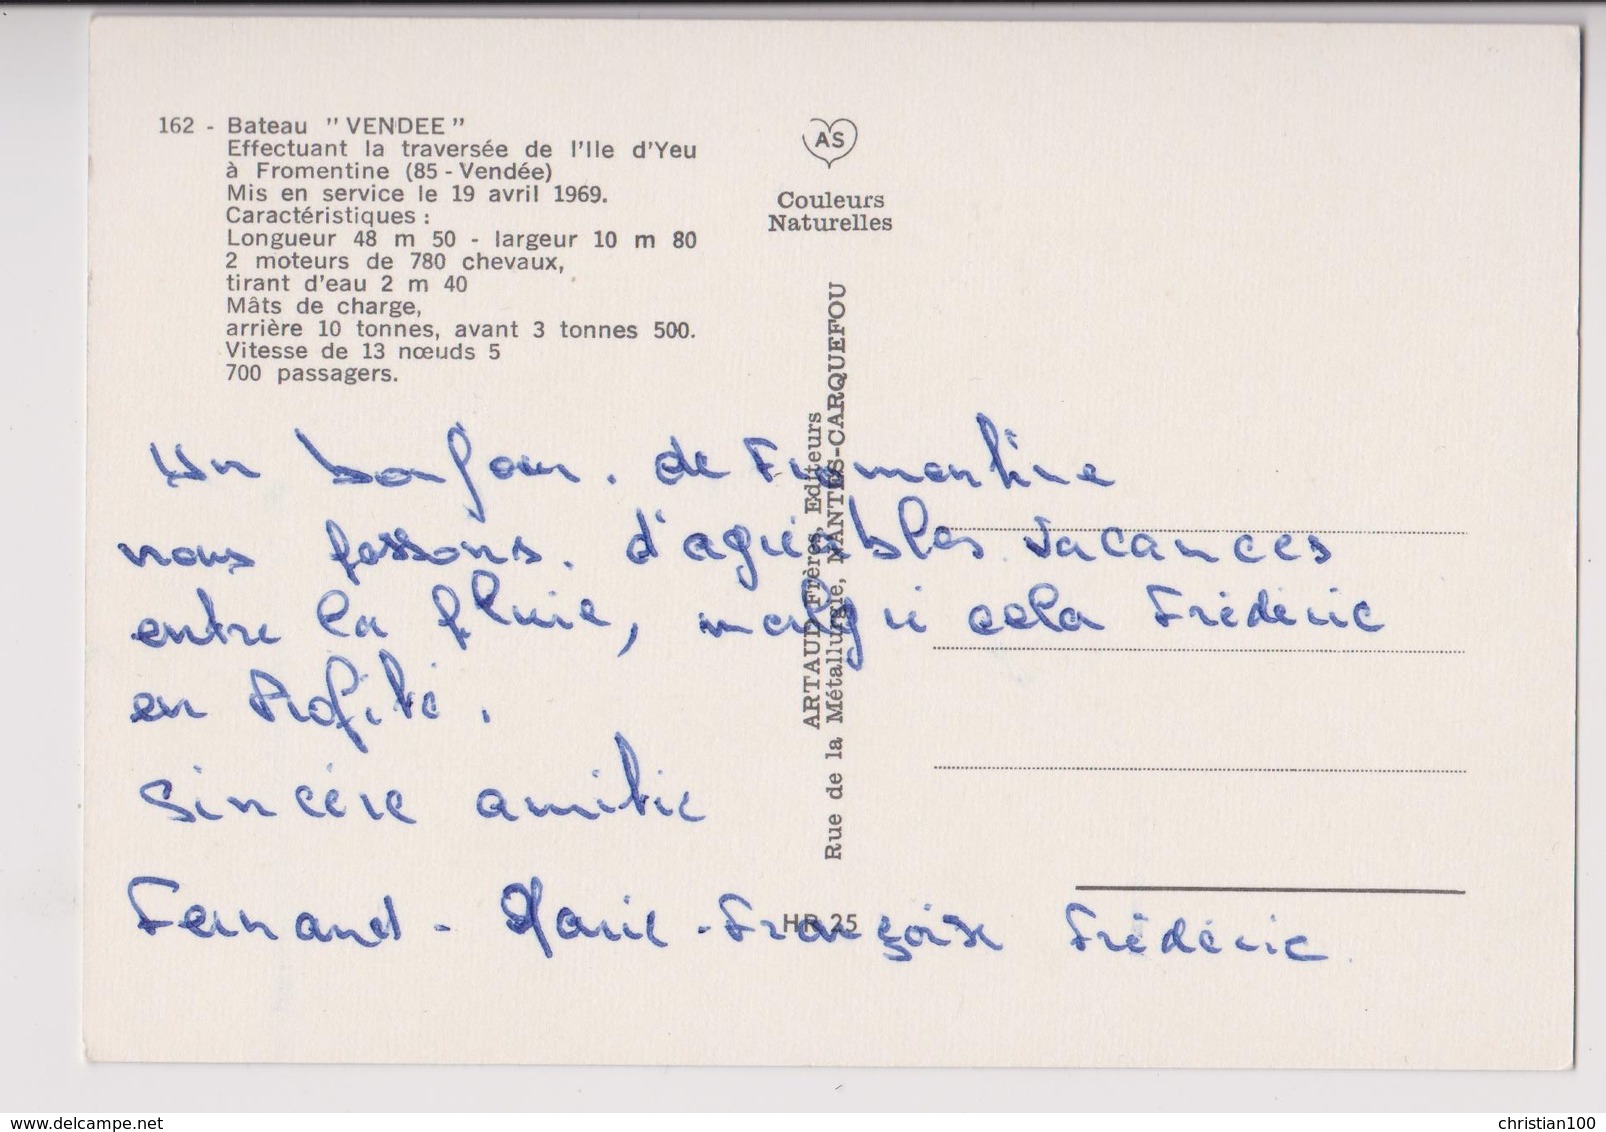 162 - Bateau "VENDEE"
Effectuant la traversée de l'Ile d'Yeu
à Fromentine (85 - Vendée)
Mis en service le 19 avril 1969.
Caractéristiques :
Longueur 48 m 50 - largeur 10 m 80
2 moteurs de 780 chevaux,
tirant d'eau 2 m 40
Mâts de charge,
arrière 10 tonnes, avant 3 tonnes 500.
Vitesse de 13 nœuds 5
700 passagers.
AS
Couleurs
Naturelles
ARTAUD Frères, Editeurs
Rue de la Métallurgie, NANTES-CARQUEFOU
HR 25
Un bonjour. de Fromentine
nous passons. d'agréables vacances
entre la pluie, malgré cela Frédéric
en profite.
Sincère amitié
Fernand - Marie - Françoise Frédéric.
delcampe.net
christian100